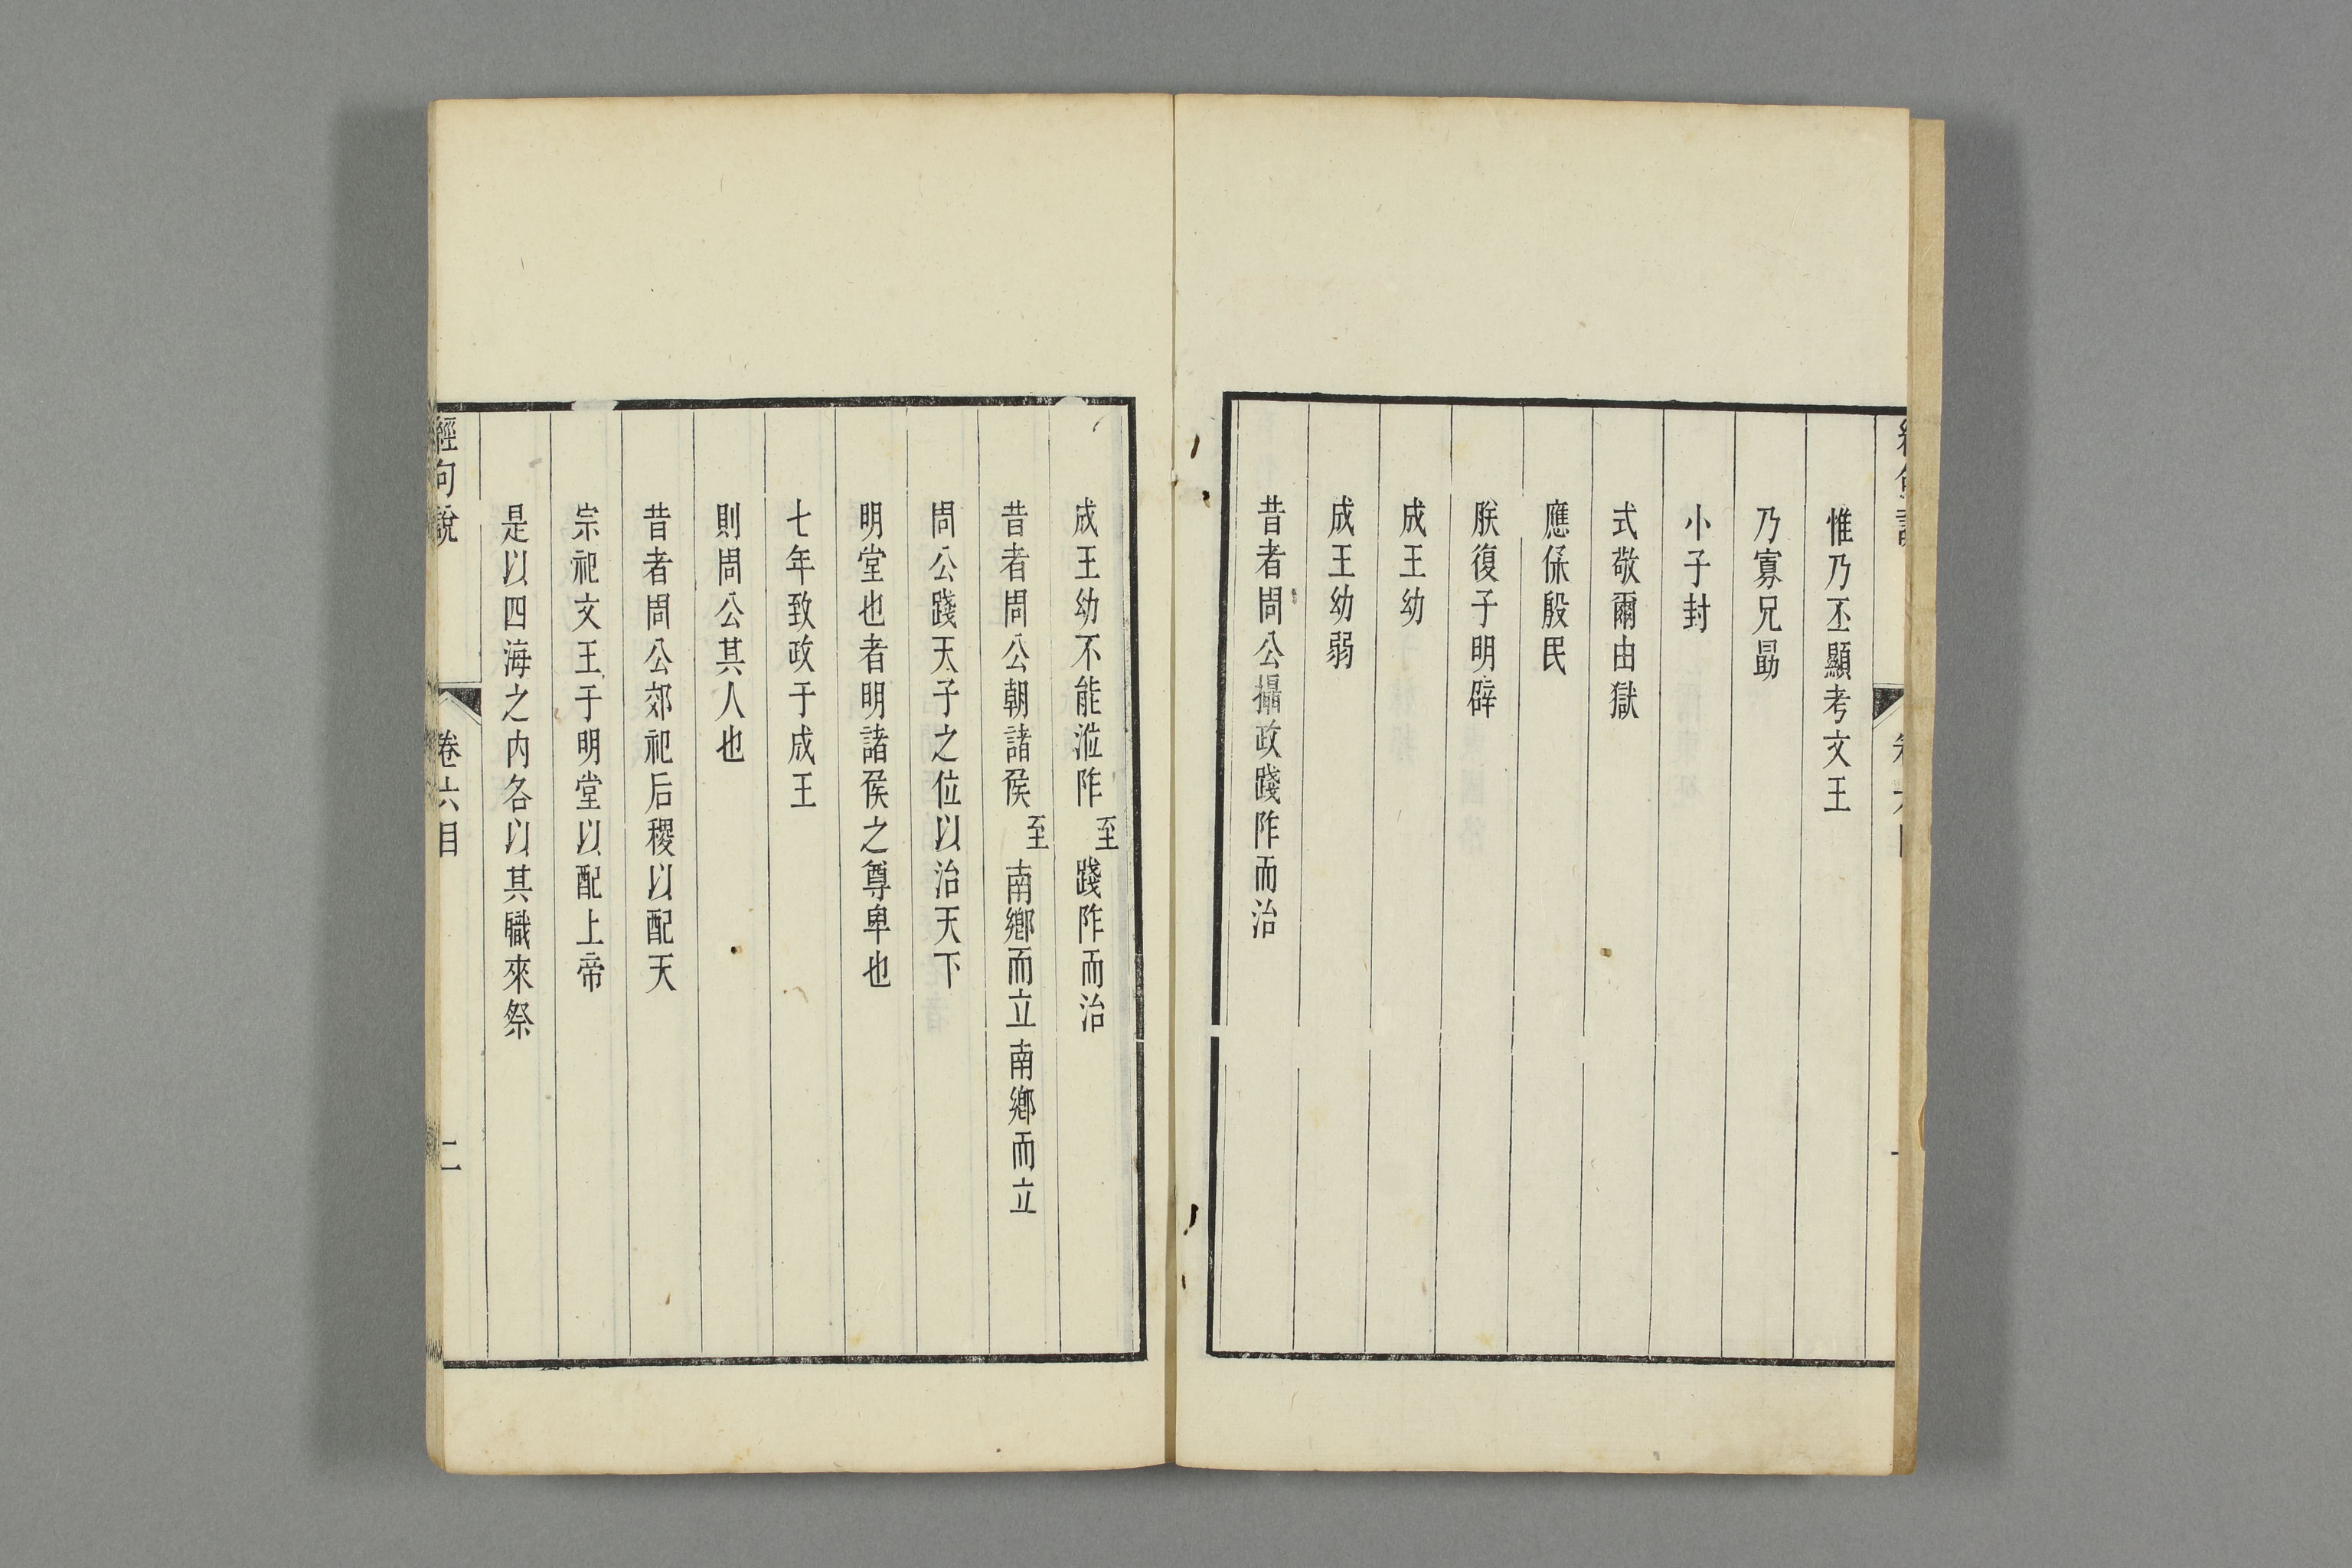 惟乃丕顯考文王
乃寡兄勗
小子封
式敬爾由獄
應保殷民
朕復子明辟
成王幼
成王幼弱
昔者周公攝政踐阼而治
成王幼不能涖阼至踐阼而治
昔者周公朝諸侯至南鄉而立南鄉而立
周公踐天子之位以治天下
明堂也者明諸侯之尊卑也
七年致政于成王
則周公其人也
昔者周公郊祀后稷以配天
宗祀文王于明堂以配上帝
是以四海之內各以其職來祭
經句說 卷六目 二